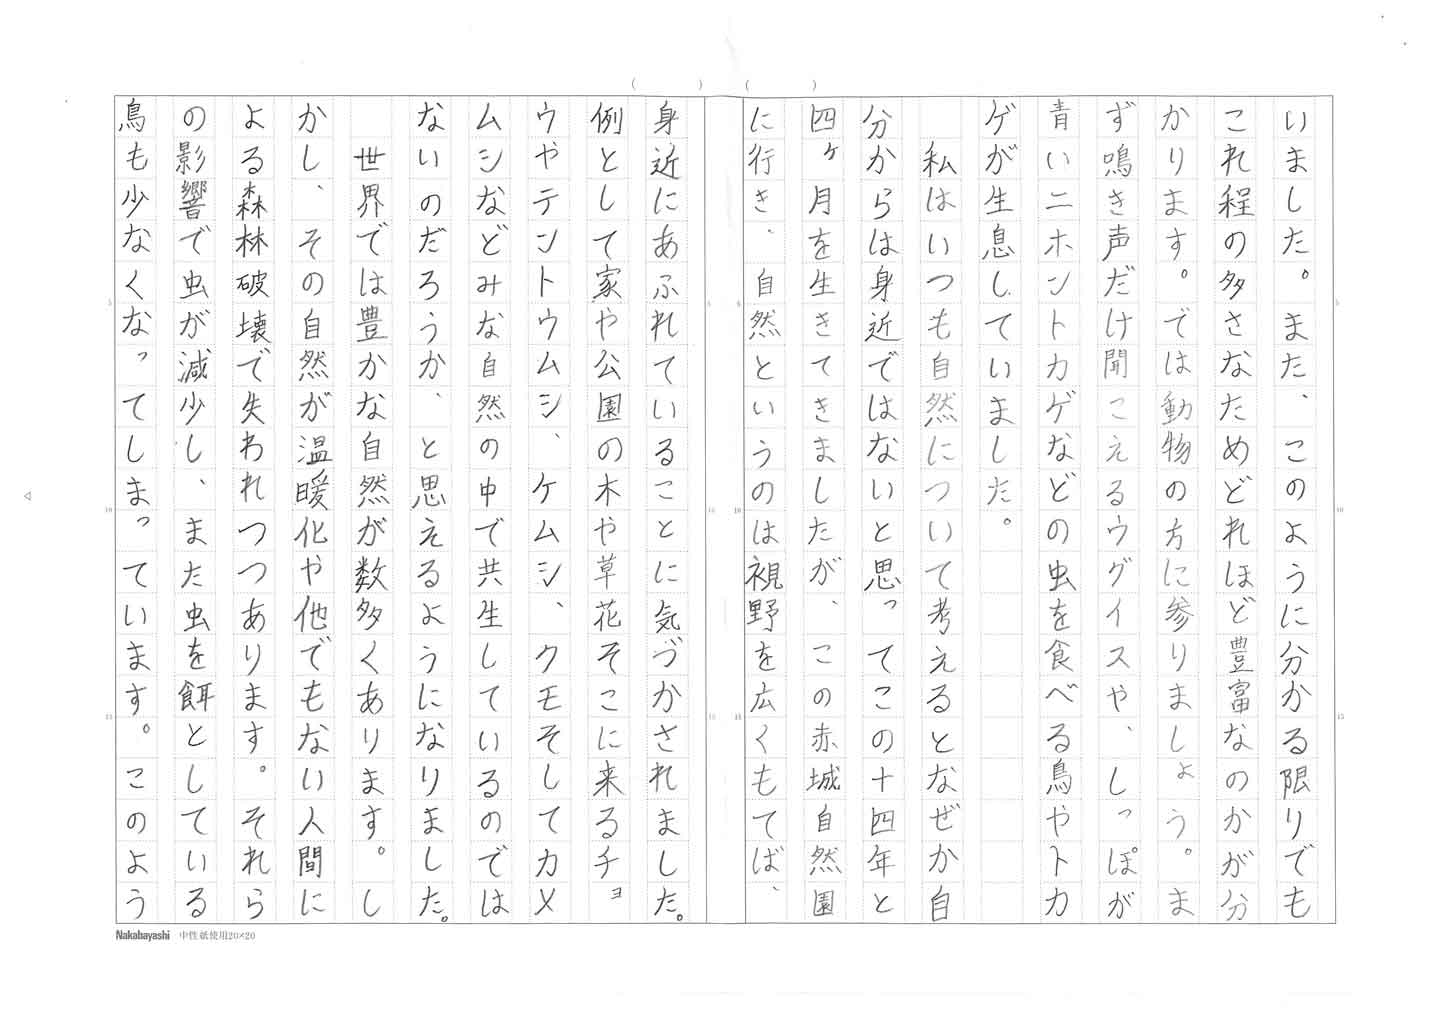 いました。また、このように分かる限りでも
これ程の多さなためどれほど豊富なのかが分
かります。では動物の方に参りましょう。ま
ず鳴き声だけ聞こえるウグイスや、しっぽが
青いニホントカゲなどの虫を食べる鳥やトカ
ゲが生息していました。
　私はいつも自然について考えるとなぜか自
分からは身近ではないと思ってこの十四年と
四ヶ月を生きてきましたが、この赤城自然園
に行き、自然というのは視野を広くもてば、
身近にあふれていることに気づかされました。
例として家や公園の木や草花そこに来るチョ
ウやテントウムシ、ケムシ、クモそしてカメ
ムシなどみな自然の中で共生しているのでは
ないのだろうか、と思えるようになりました。
　世界では豊かな自然が数多くあります。し
かし、その自然が温暖化や他でもない人間に
よる森林破壊で失われつつあります。それら
の影響で虫が減少し、また虫を餌としている
鳥も少なくなってしまっています。このよう
Nakabayashi 中性紙使用20×20
5
10
15
5
10
15
5
10
15
5
10
15